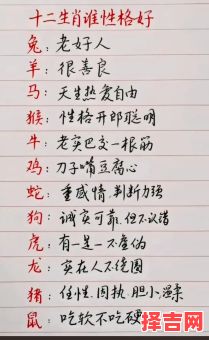 十二生肖谁性格好
兔：老好人
羊：很善良
马：天生热爱自由
猴：性格开郎聪明
牛：老实巴交一根筋
鸡：刀子嘴豆腐心
蛇：重感情，判断力强
狗：诚实可靠，但不认谱
虎：有一是一不虚伪
龙：实在人不绕圈
猪：任性，固执，胆小
鼠：吃软不吃硬
择吉网